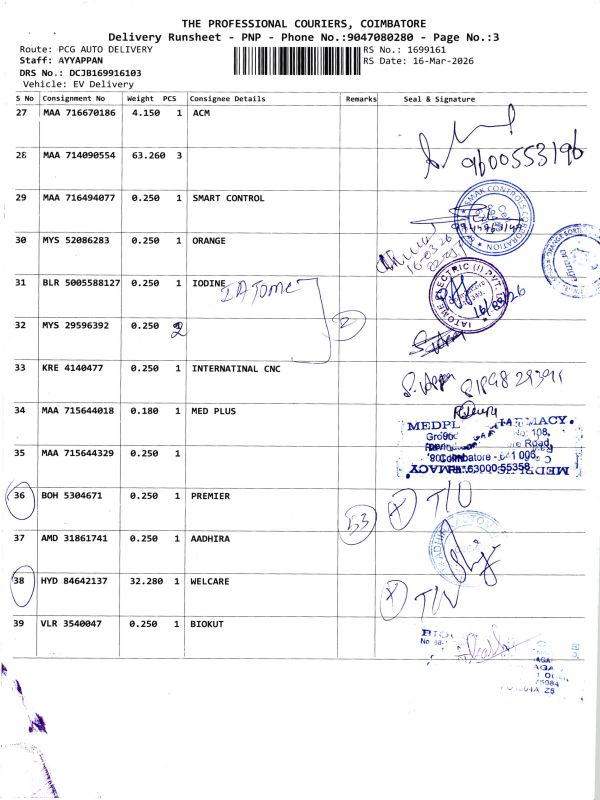 THE PROFESSIONAL COURIERS, COIMBATORE
Delivery Runsheet - PNP - Phone No.:9047080280 - Page No.:3
Route: PCG AUTO DELIVERY
RS No.: 1699161
Staff: AYYAPPAN
RS Date: 16-Mar-2026
DRS No.: DCJB169916103
Vehicle: EV Delivery
S No Consignment No Weight PCS Consignee Details Remarks Seal & Signature
27 MAA 716670186 4.150 1 ACM
28 MAA 714090554 63.260 3 9600553196
29 MAA 716494077 0.250 1 SMART CONTROL
SMAK CONTROLS CORPORATION
30 MYS 52086283 0.250 1 ORANGE
16-03-26
31 BLR 5005588127 0.250 1 IODINE
IATOME
IATOME ELECTRIC (I) PVT.
16/03/26
32 MYS 29596392 0.250 2 2
33 KRE 4140477 0.250 1 INTERNATINAL CNC
34 MAA 715644018 0.180 1 MED PLUS
MEDPL MACY.
No: 108,
Road,
Coimbatore - 641 006.
63000 55358
35 MAA 715644329 0.250 1
36 BOH 5304671 0.250 1 PREMIER
53
37 AMD 31861741 0.250 1 AADHIRA
38 HYD 84642137 32.280 1 WELCARE
39 VLR 3540047 0.250 1 BIOKUT